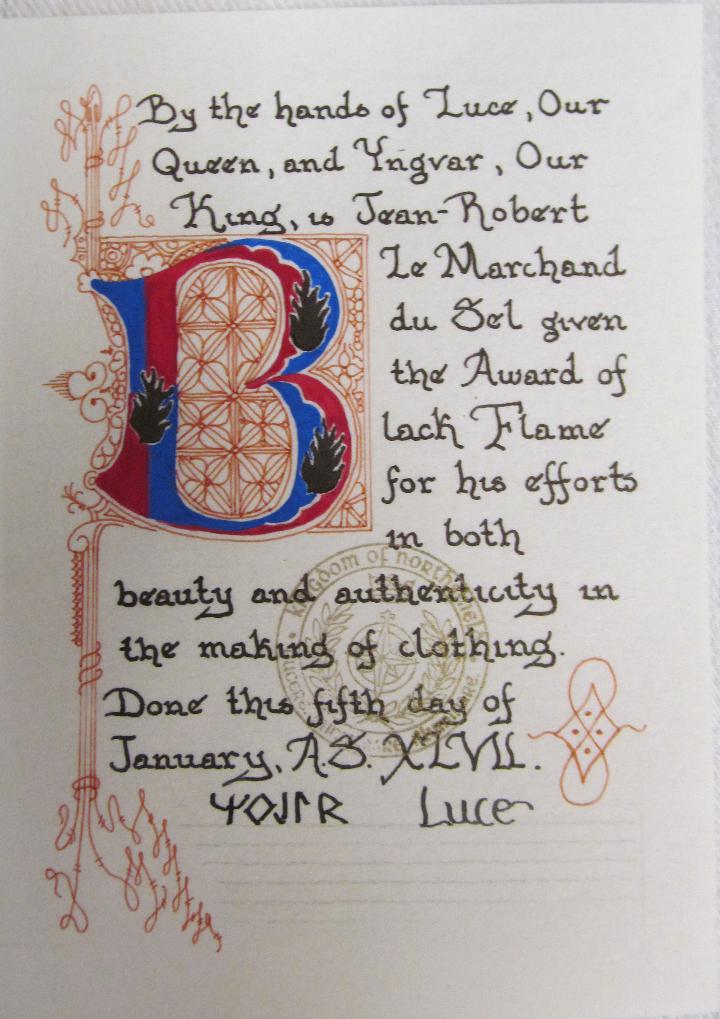 By the hands of Luce, Our
Queen, and Yngvar, Our
King, is Jean-Robert
Le Marchand
du Sel given
the Award of
Black Flame
for his efforts
in both
beauty and authenticity in
the making of clothing.
Done this fifth day of
January, A.S. XLVII.
Luce
kingdom of northshield